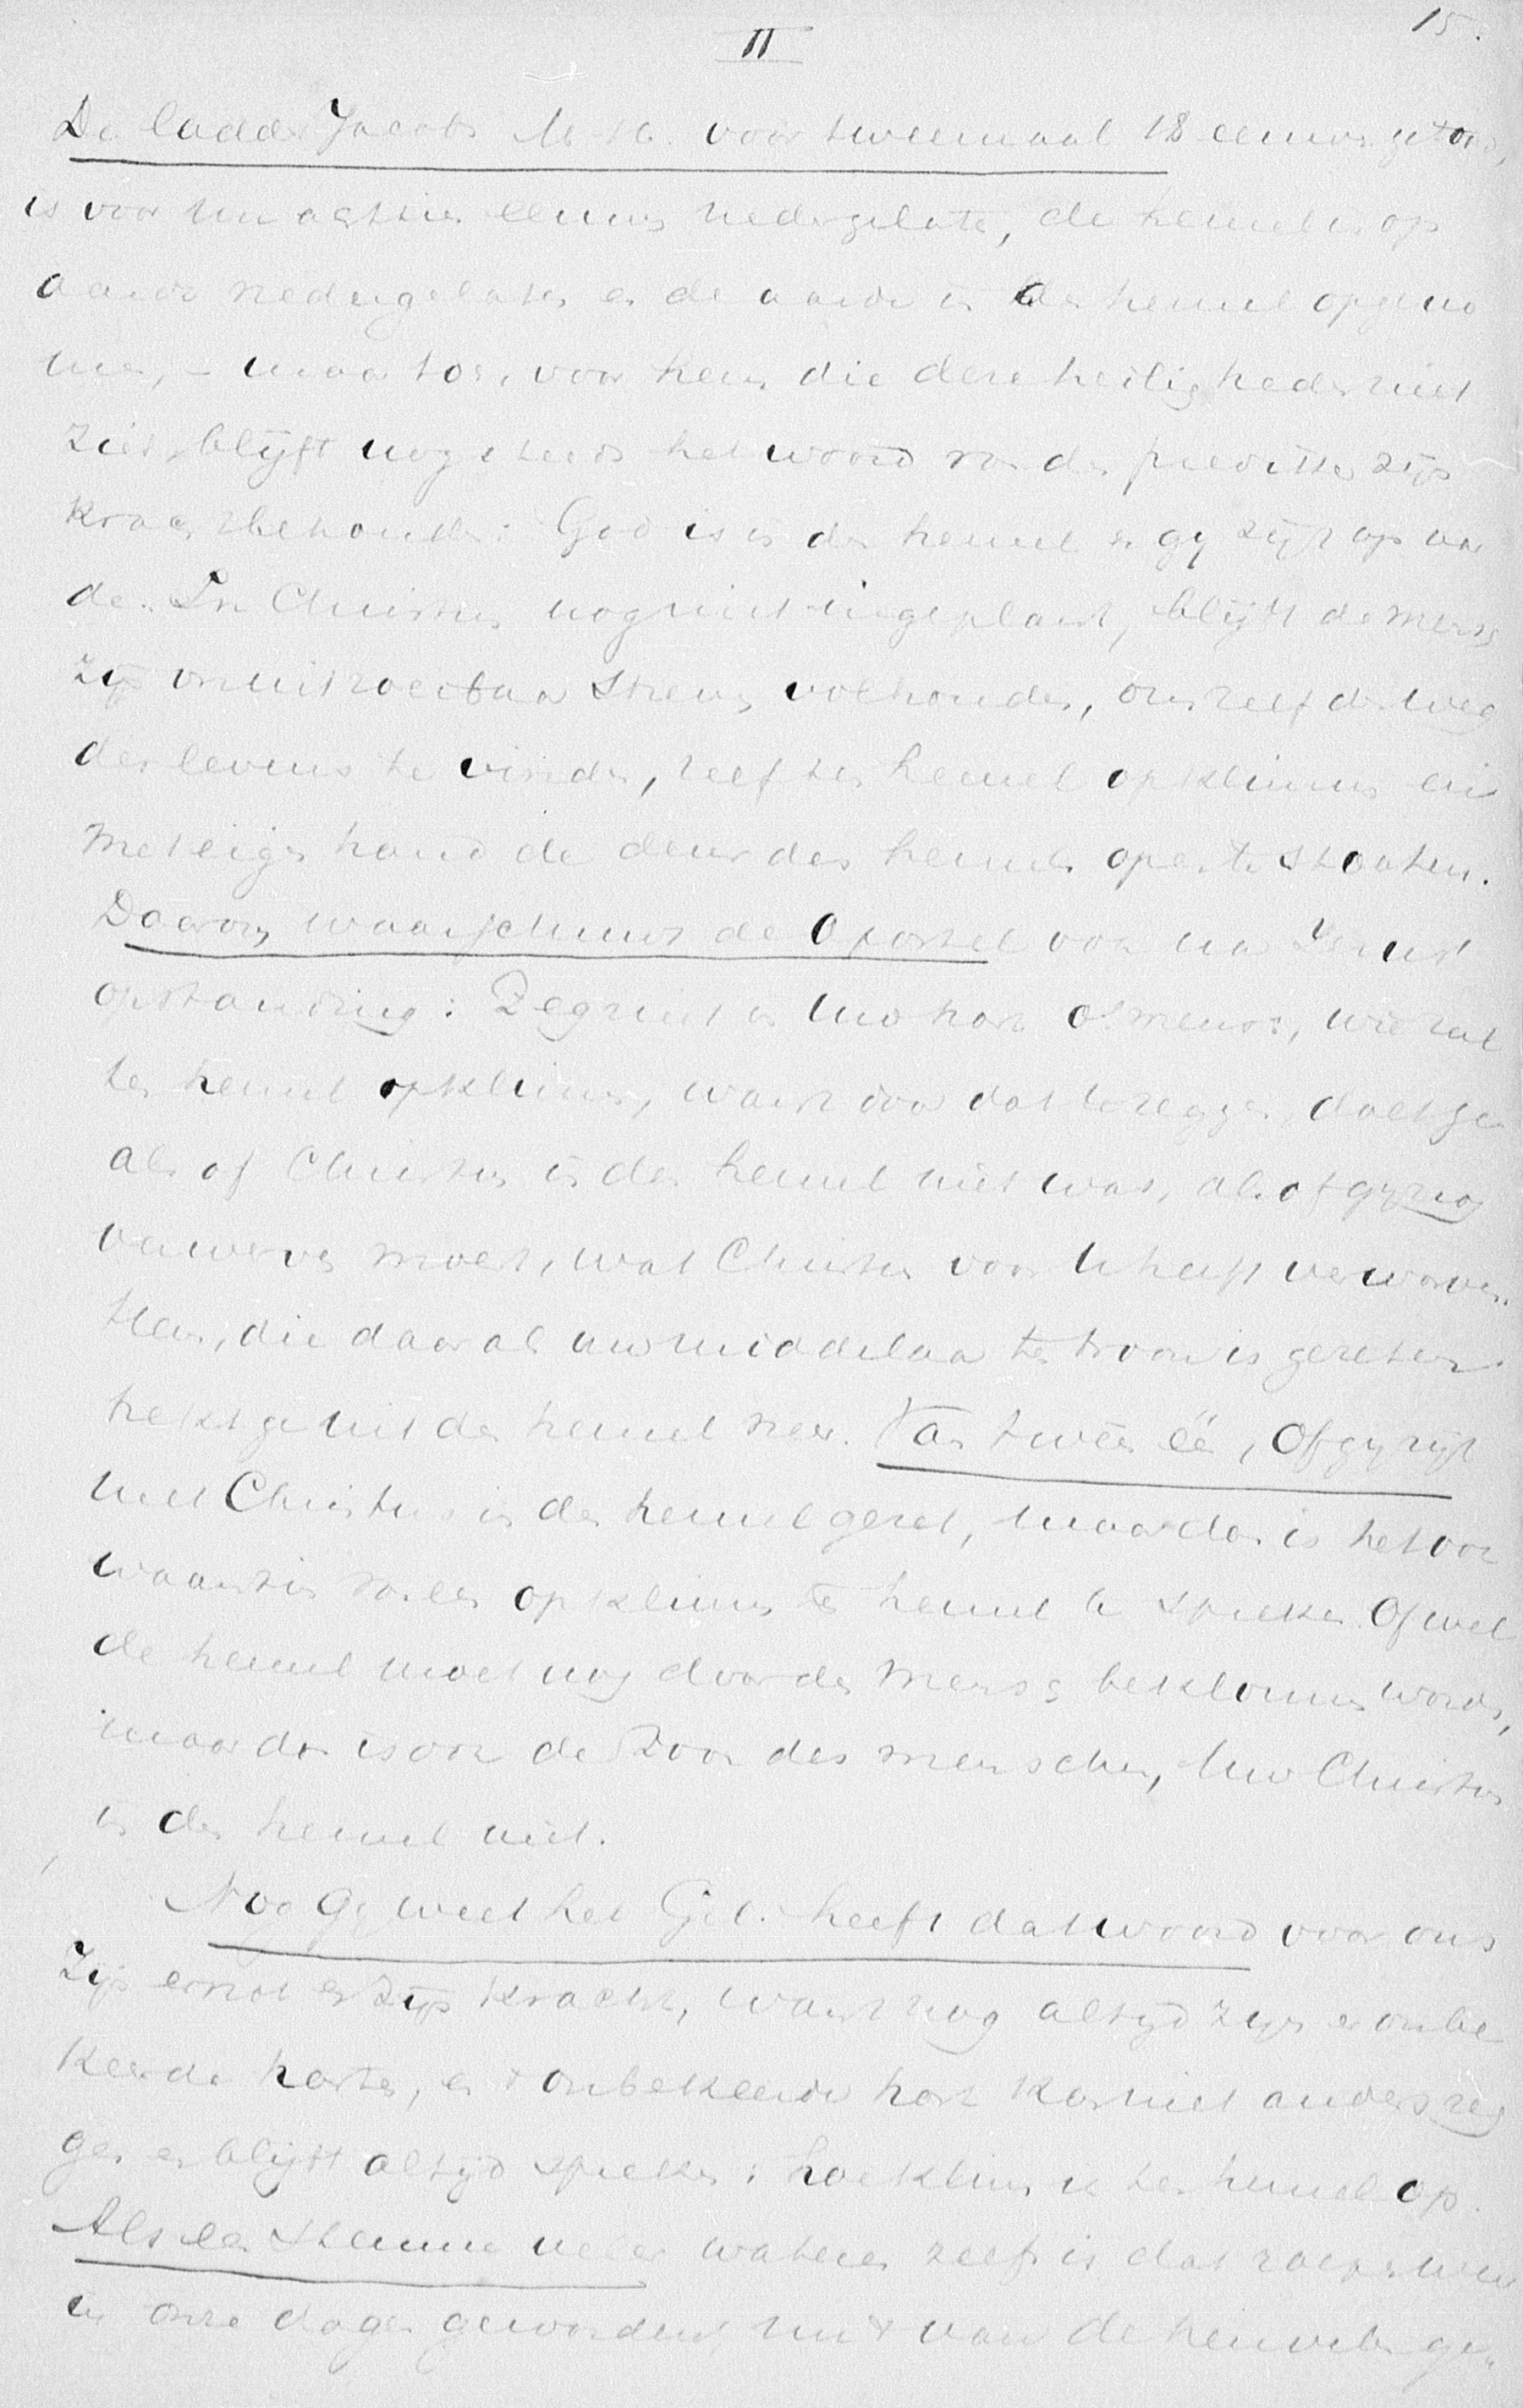 15.
II
De ladder Jacobs M. H. voor tweemaal 18 eeuwen getoond,
is voor nu achtien eeuwen nedergelaten, de hemel is op
aarde nedergelaten en de aarde in den hemel opgeno
men, – maar toch, voor hem die deze heiligheden niet
ziet, blijft nog steeds het woord van den prediker zijn
kracht behouden: God is in den hemel en gij zijt op aar
de. In Christus nog niet ingeplant, blijft de mensch
zijn onuitroeibaar streven volhouden, om zelf den weg
des levens te vinden, zelf ten hemel op klimmen en
met eigen hand de deur des hemels open te stooten.
Daarom waarschuwt de Apostel ook na Jezus'
opstanding: Zeg niet in Uw hart o! mensch, wie zal
ten hemel opklimmen, want door dat te zeggen, doet ge
als of Christus in den hemel niet was, als of gij nog
verwerven moest, wat Christus voor U heeft verworven.
Hem, die daar als uw middelaar ten troon is gezeten
trekt ge uit den hemel neer. Van tweeën één, Of gij zijt
met Christus in den hemel gezet, maar dan is het ook
waanzin van een opklimmen ten hemel te spreken. Of wel
de hemel moet nog door den mensch beklommen worden,
maar dan is ook de Zoon des menschen, Uw Christus
in den hemel niet.
Nog Gij weet het Gel. heeft dat woord voor ons
zijn ernst en zijn kracht, want nog altijd zijn er onbe
keerde harten, en 't onbekeerde hart kan niet anders zeg
gen en blijft altijd spreken: hoe klim ik ten hemel op.
Als een stemme veler wateren zelfs is dat roepen weer
in onze dagen geworden, nu 't van de heuvelen ge„